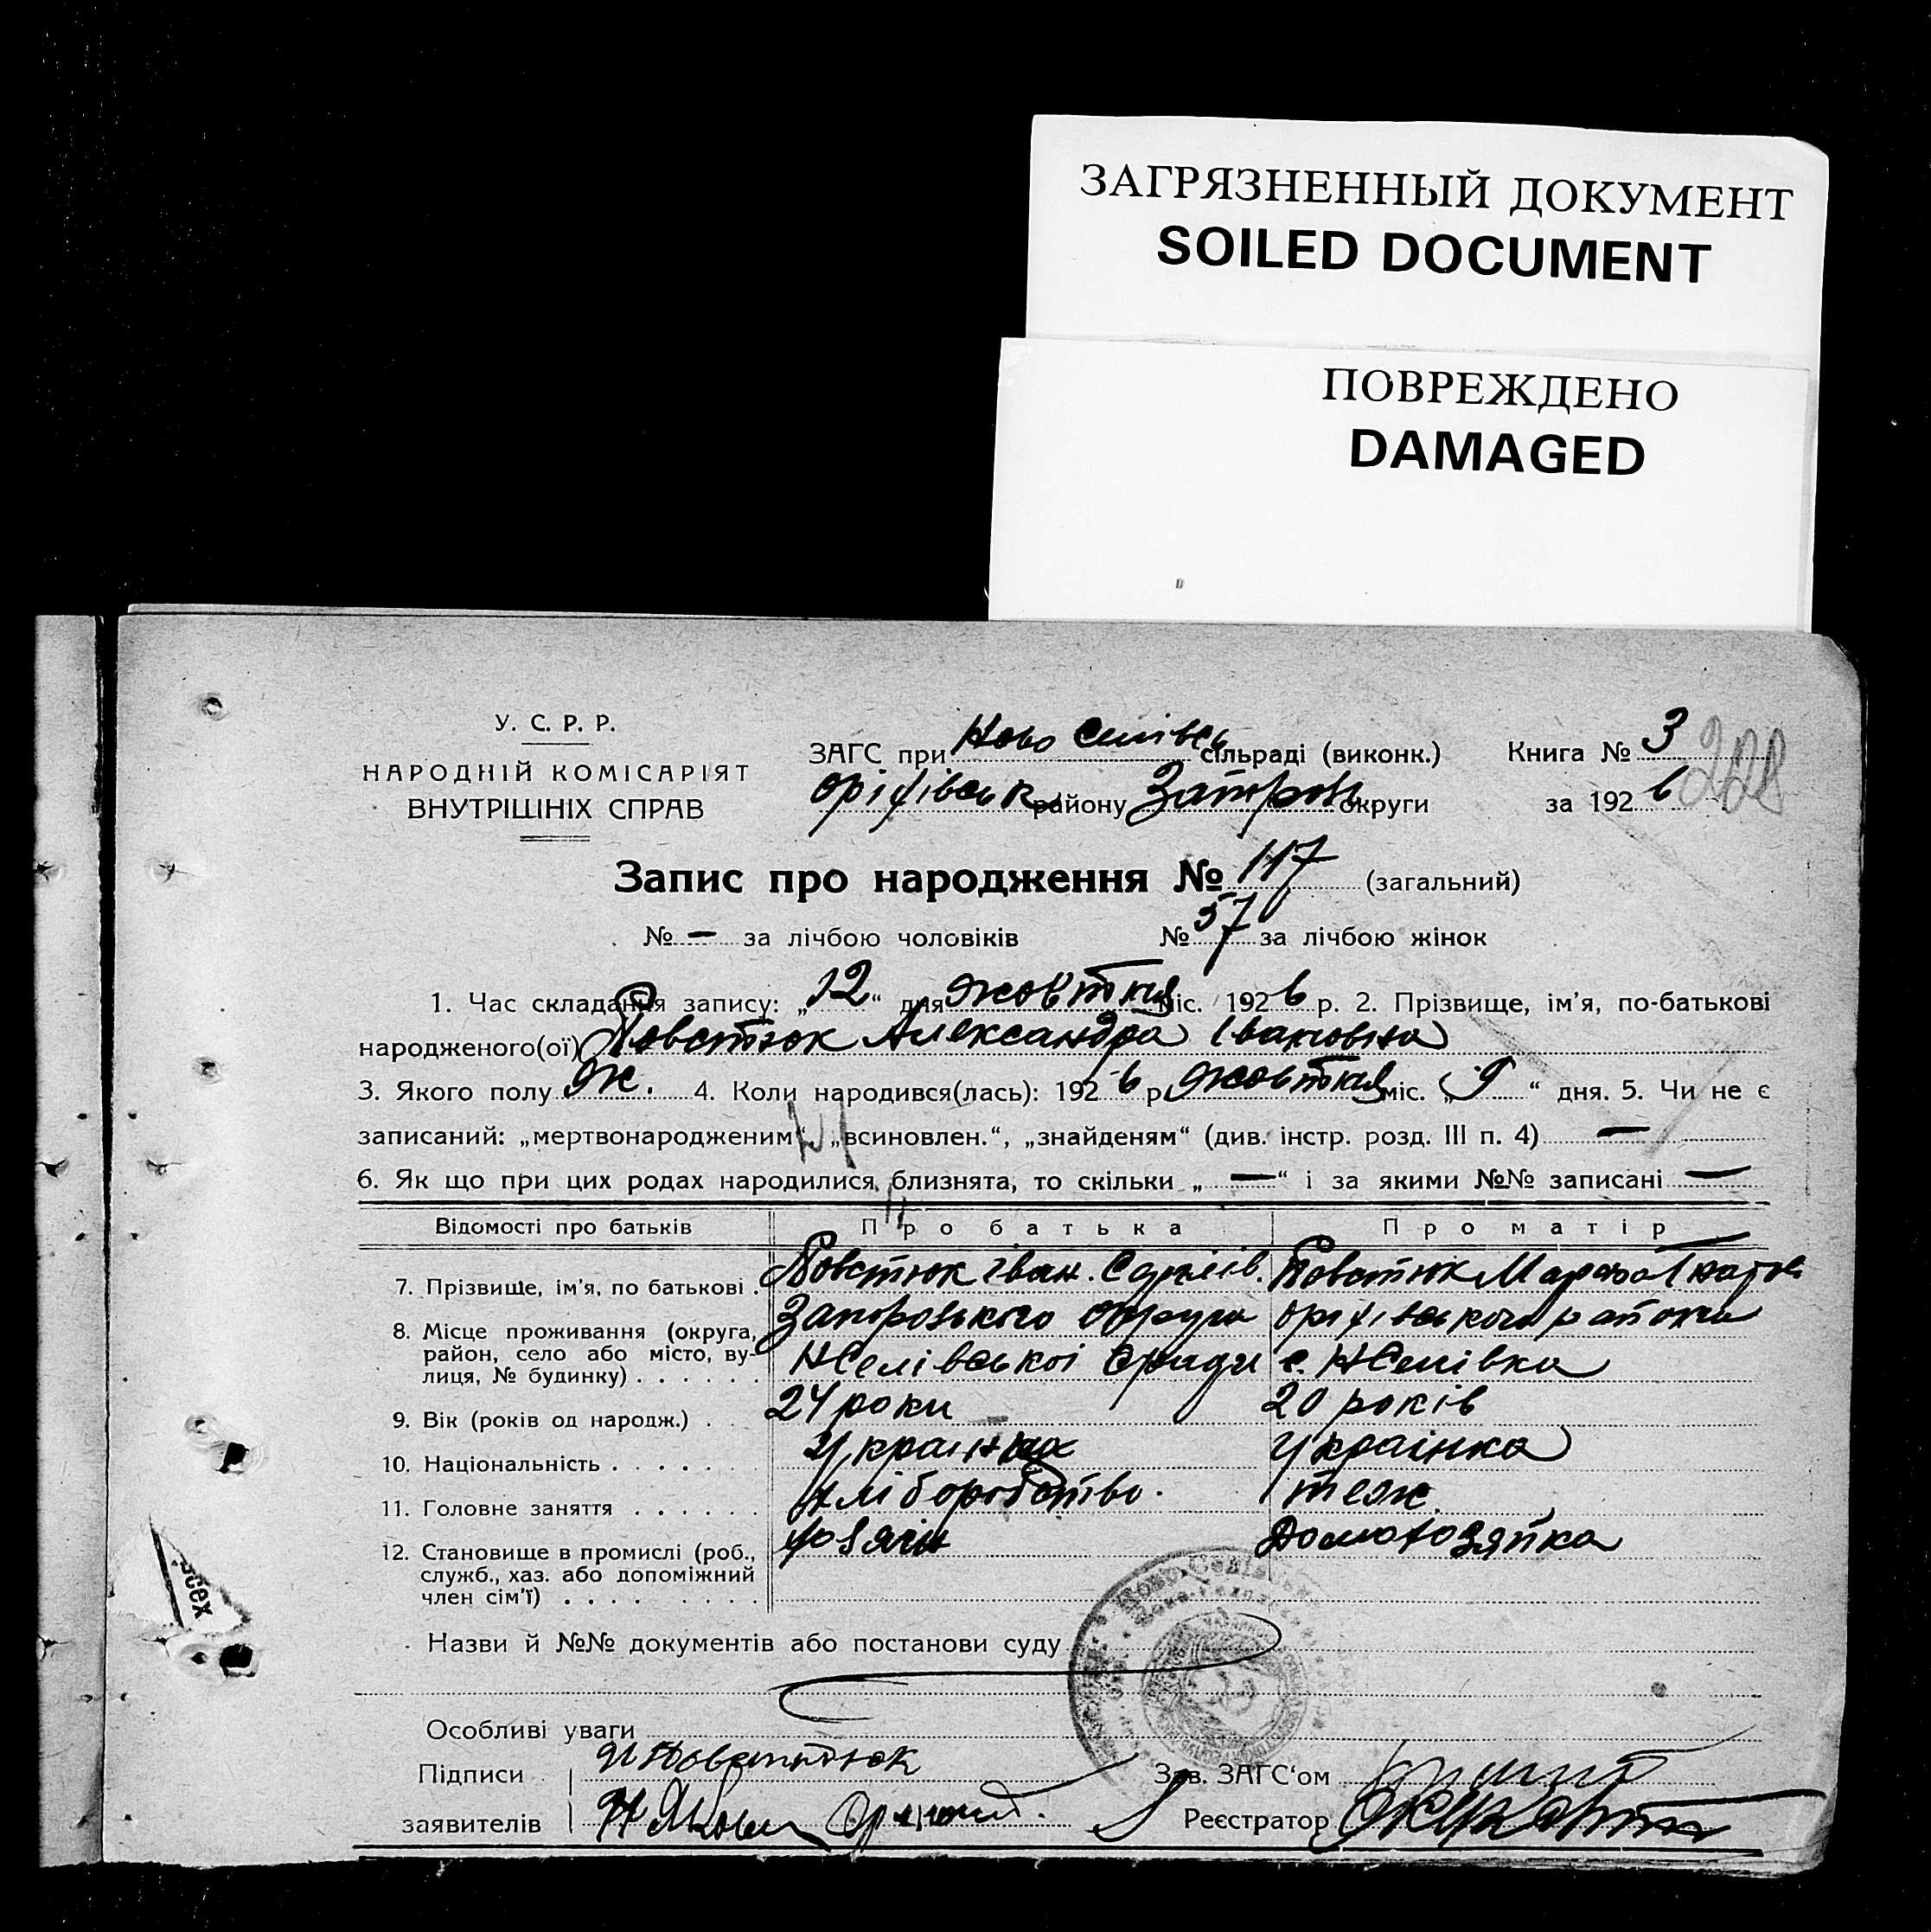 ЗАГРЯЗНЕННЫЙ ДОКУМЕНТ
SOILED DOCUMENT
ПОВРЕЖДЕНО
DAMAGED
У. С. Р. Р.
НАРОДНІЙ КОМІСАРІЯТ
ВНУТРІШНІХ СПРАВ
ЗАГС при Ново Селівсь сільраді (виконк.) Книга № 3 228
Оріхівськ району Запоріз округи за 192 6
Запис про народження № 117 (загальний)
№ — за лічбою чоловіків № 57 за лічбою жінок
1. Час складання запису: „12“ дня жовтня міс. 1926 р. 2. Прізвище, ім'я, по-батькові
народженого(ої) Повстюк Александра Івановна
3. Якого полу Ж. 4. Коли народився(лась): 1926 р. жовтня міс. „9“ дня. 5. Чи не є
записаний: „мертвонародженим“, „всиновлен.“, „знайденям“ (див. інстр. розд. III п. 4) —
6. Як що при цих родах народилися близнята, то скільки „—“ і за якими №№ записані —
Відомості про батьків Про батька Про матір
7. Прізвище, ім'я, по батькові . Повстюк Іван. Повстюк
8. Місце проживання (округа, Запорозького округи Оріхівського району
район, село або місто, ву- НСелівської с. НСелівка
лиця, № будинку) . . . . . .
9. Вік (років од народж.) . 24 роки 20 років
10. Національність . . . . . . українка
11. Головне заняття . . . . . . хліборобство. теж
12. Становище в промислі (роб., хозяін Домохозяйка
служб., хаз. або допоміжний
член сім'ї) . . . . . . . .
всех
Назви й №№ документів або постанови суду
Особливі уваги
Підписи И Повстюк Зав. ЗАГС'ом
заявителів Реєстратор